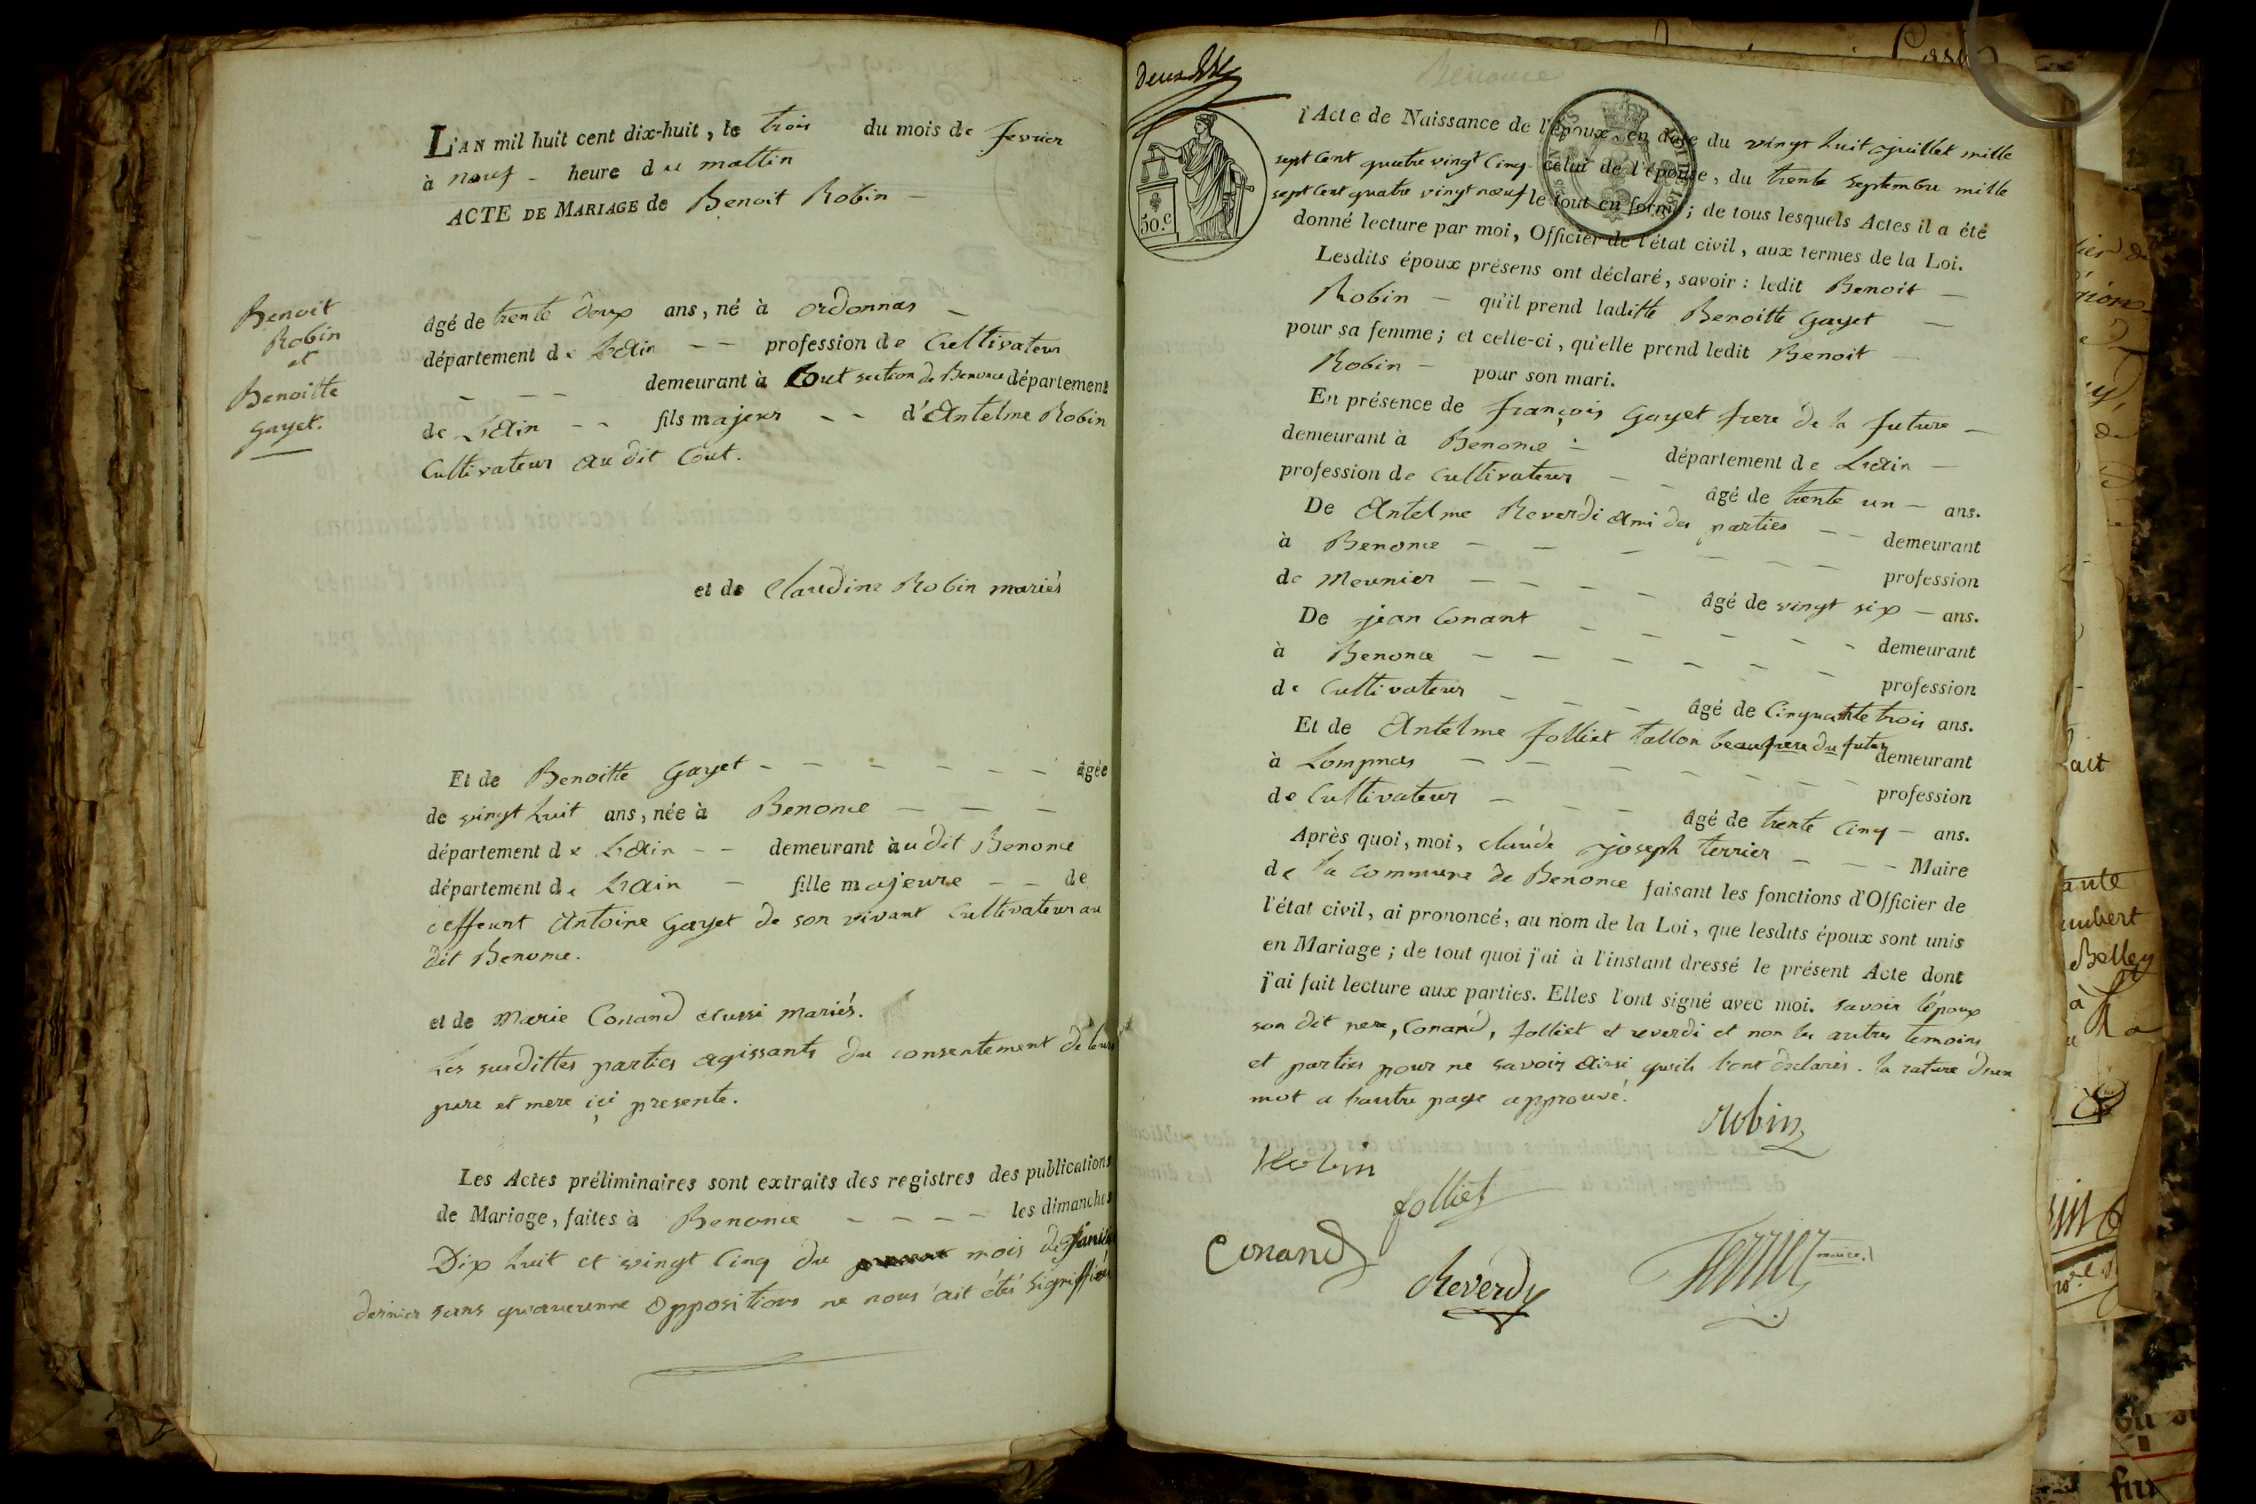 L'AN mil huit cent dix-huit, le trois du mois de fevrier
à neuf - heure du mattin
ACTE DE MARIAGE de Benoit Robin -
Benoit
Robin
et
Benoitte
Gayet.
âgé de trente deux ans, né à ordonnas -
département de L'Ain - - profession de Cultivateur
- - - demeurant à Cout section de Benonce département
de L'Ain - - fils majeur - - d'Antelme Robin
Cultivateur au dit Cout.
et de Claudine Robin mariés
Et de Benoitte Gayet - - - - - - - âgée
de vingt huit ans, née à Benonce - - -
département de L'Ain - - demeurant àudit Benonce
département de L'ain - fille majeure - - de
deffeunt Antoine Gayet de son vivant Cultivateur au
dit Benonce.
et de Marie Conand aussi mariés.
Les susdittes parties agissants du consentement de leurs
pere et mere içi presente.
Les Actes préliminaires sont extraits des registres des publications
de Mariage, faites à Benonce - - - - les dimanches
Dix huit et vingt Cinq du mois de Janvier
dernier sans qu'aucunne Oppositions ne nous ait étés signiffiés
50.C
l'Acte de Naissance de l'époux, en date du vingt huit juillet mille
sept Cent quatre vingt Cinq celui de l'épouse, du trente septembre mille
sept Cent quatre vingt noeuf le tout en forme; de tous lesquels Actes il a été
donné lecture par moi, Officier de l'état civil, aux termes de la Loi.
Lesdits époux présens ont déclaré, savoir: ledit Benoit -
Robin - qu'il prend laditte Benoitte Gayet -
pour sa femme; et celle-ci, qu'elle prend ledit Benoit -
Robin - pour son mari.
En présence de françois Gayet frere de la future -
demeurant à Benonce - département de L'Ain -
profession de Cultivateur - - âgé de trente un - ans.
De Antelme Reverdi Ami des parties - - demeurant
à Benonce - - - - - - profession
de Meunier - - - - âgé de vingt six - ans.
De jean Conant - - - - - - demeurant
à Benonce - - - - - - - profession
de Cultivateur - - - âgé de Cinquante trois ans.
Et de Antelme folliet tallon beaufrere du futur demeurant
à Lompnas - - - - - - - profession
de Cultivateur - - - âgé de trente Cinq - ans.
Après quoi, moi, claude joseph terrier - - - Maire
de la Commune de Benonce faisant les fonctions d'Officier de
l'état civil, ai prononcé, au nom de la Loi, que lesdits époux sont unis
en Mariage; de tout quoi j'ai à l'instant dressé le présent Acte dont
j'ai fait lecture aux parties. Elles l'ont signé avec moi. savoir l'époux
son dit pere, Conand, folliet et reverdi et non les autres temoins
et parties pour ne savoir Ainsi qu'ils l'ont declarés. la rature d'un
mot a l'autre page approuvé.
Robin
Robin
folliet
Conand
Reverdy
Terrier maire.